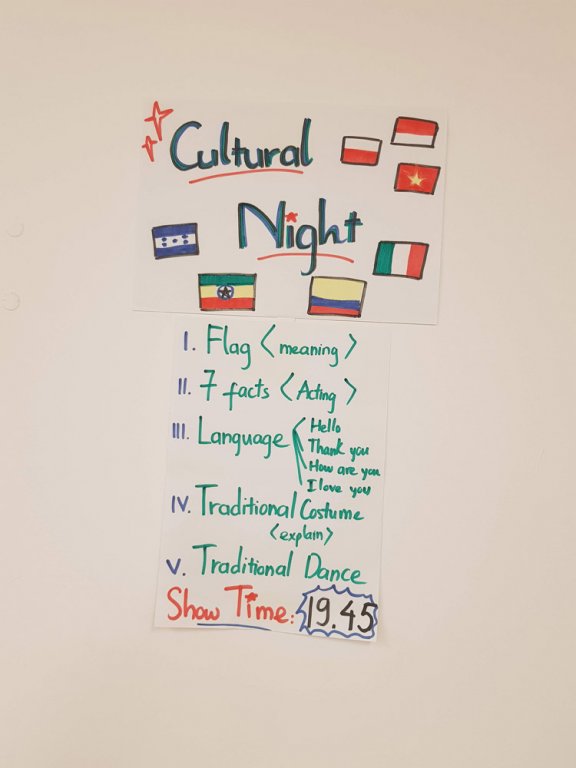 Cultural
Night
I. Flag < meaning >
II. 7 facts < Acting >
III. Language
Hello
Thank you
How are you
I love you
IV. Traditional Costume
<explain>
V. Traditional Dance
Show Time: 19.45